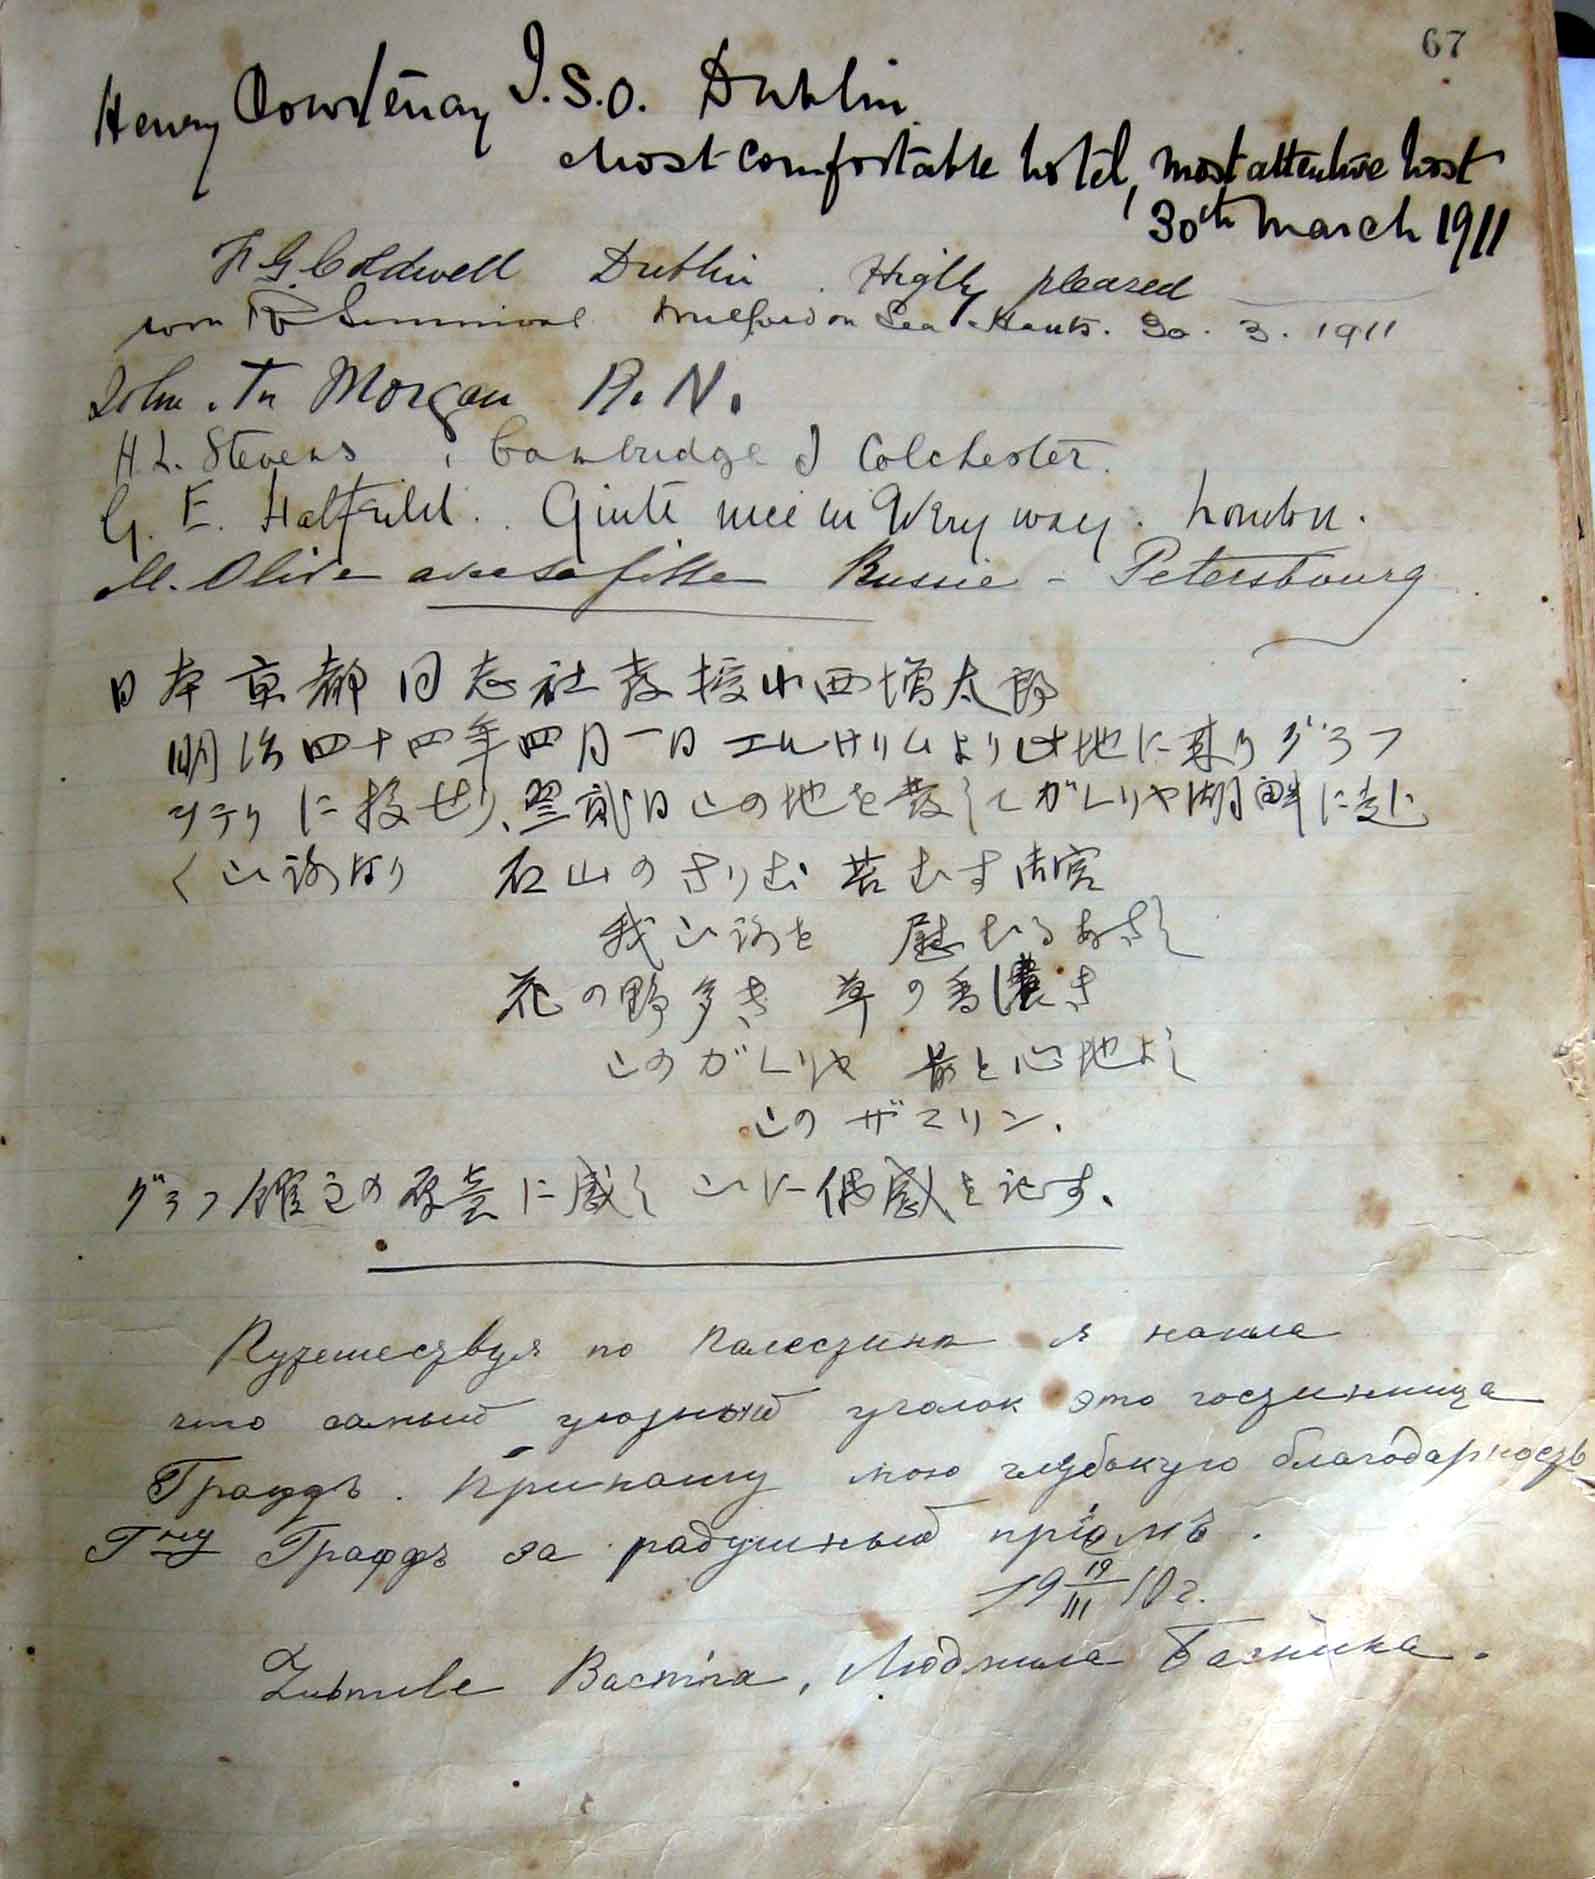 67
Henry I.S.O. Dublin.
Most comfortable hotel, most attentive host
30th March 1911
F G Coldwell Dublin. Highly pleased
Milford on Sea Hants. 30. 3. 1911
John. Morgan R. N.
H. L. Stevens, Cambridge & Colchester.
G. E. Quite nice in every way. London.
M. Olive avec sa fille Russie - Petersbourg
日本京都同志社教授小西増太郎
明治四十四年四月一日エルサリムより此地に来りグラフ
ホテリに投せり、翌貳日この地を発してガレリヤ湖畔に
石山のさりむ 苔むす
我 慰むるあさし
花の野多き 草の香濃き
このガレリヤ 最と心地よし
このザマリン.
グラフ館主の厚意に感し に偶感を記す、
Путешествуя по Палестинѣ я нашла
что самый уютный уголок это гостинница
Граффъ. Приношу мою глубокую благодарность
Гну Граффъ за радушный пріемъ.
19 19/III 10 г.
Ludmila Людмила